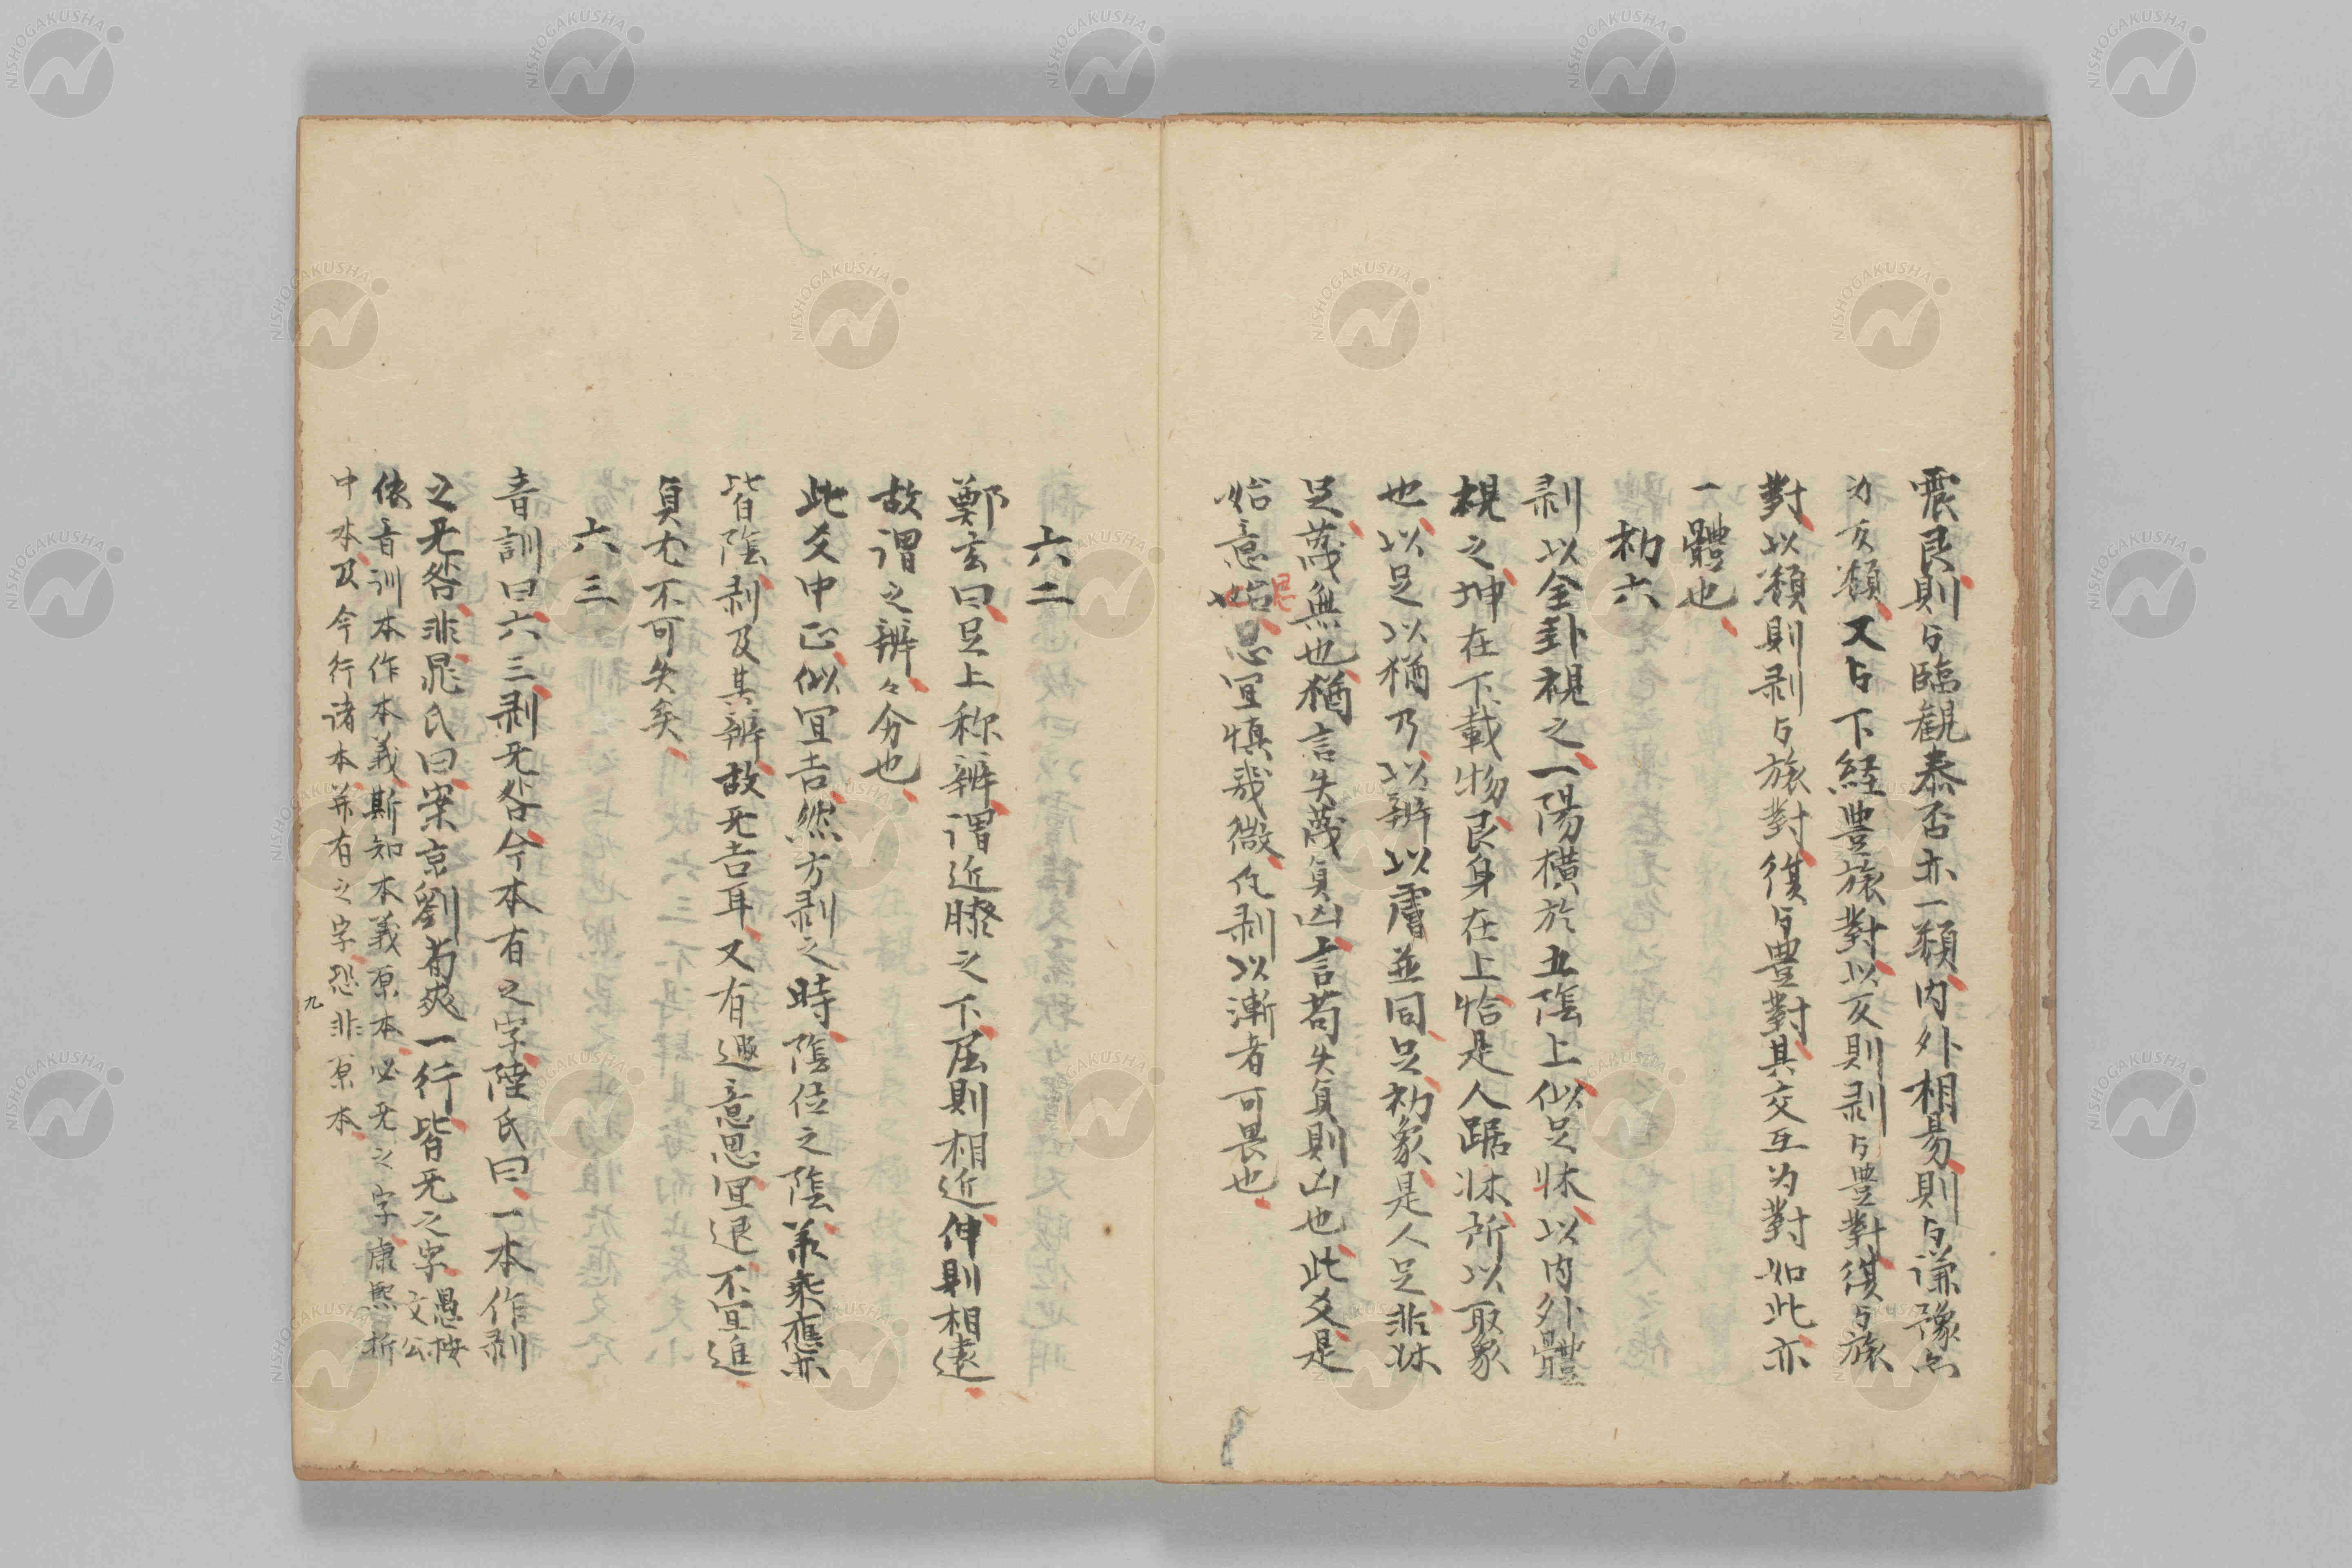 震艮則与臨観泰否亦一類内外相易則与謙豫亦
为反類又与下経豊旅對以反則剥与豊對復与旅
對以類則剥与旅對復与豊對其交互为對如此亦
一體也
初六
剥以全卦視之一陽横於五陰上似足牀以内外體
視之坤在下載物艮身在上恰是人踞牀所以取象
也以足以猶乃以辨以膚並同足初象是人足非牀
足蔑無也猶言失蔑貞凶言苟失貞則凶也此爻是
始意始忌宜慎哉微凢剥以漸者可畏也
六二
鄭玄曰足上称辨謂近膝之下屈則相近伸則相遠
故謂之辨々分也
此爻中正似宜吉然方剥之時陰位之陰兼乘應亦
皆陰剥及其辨故无吉耳又有遯意思宜退不宜進
貞尤不可失矣
六三
音訓曰六三剥无咎今本有之字陸氏曰一本作剥
之无咎非晁氏曰案京劉荀爽一行皆无之字 愚按文公
依音訓本作本義斯知本義原本必无之字康熙折
中本及今行諸本并有之字恐非原本
九
NISHOGAKUSHA